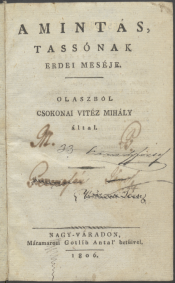 AMINTÁS,
TASSÓNAK
ERDEI MESÉJE.
OLASZBÓL
CSOKONAI VITÉZ MIHÁLY
által.
NAGY-VÁRADON,
Máramarosi Gottlib Antal' betűivel,
1806.